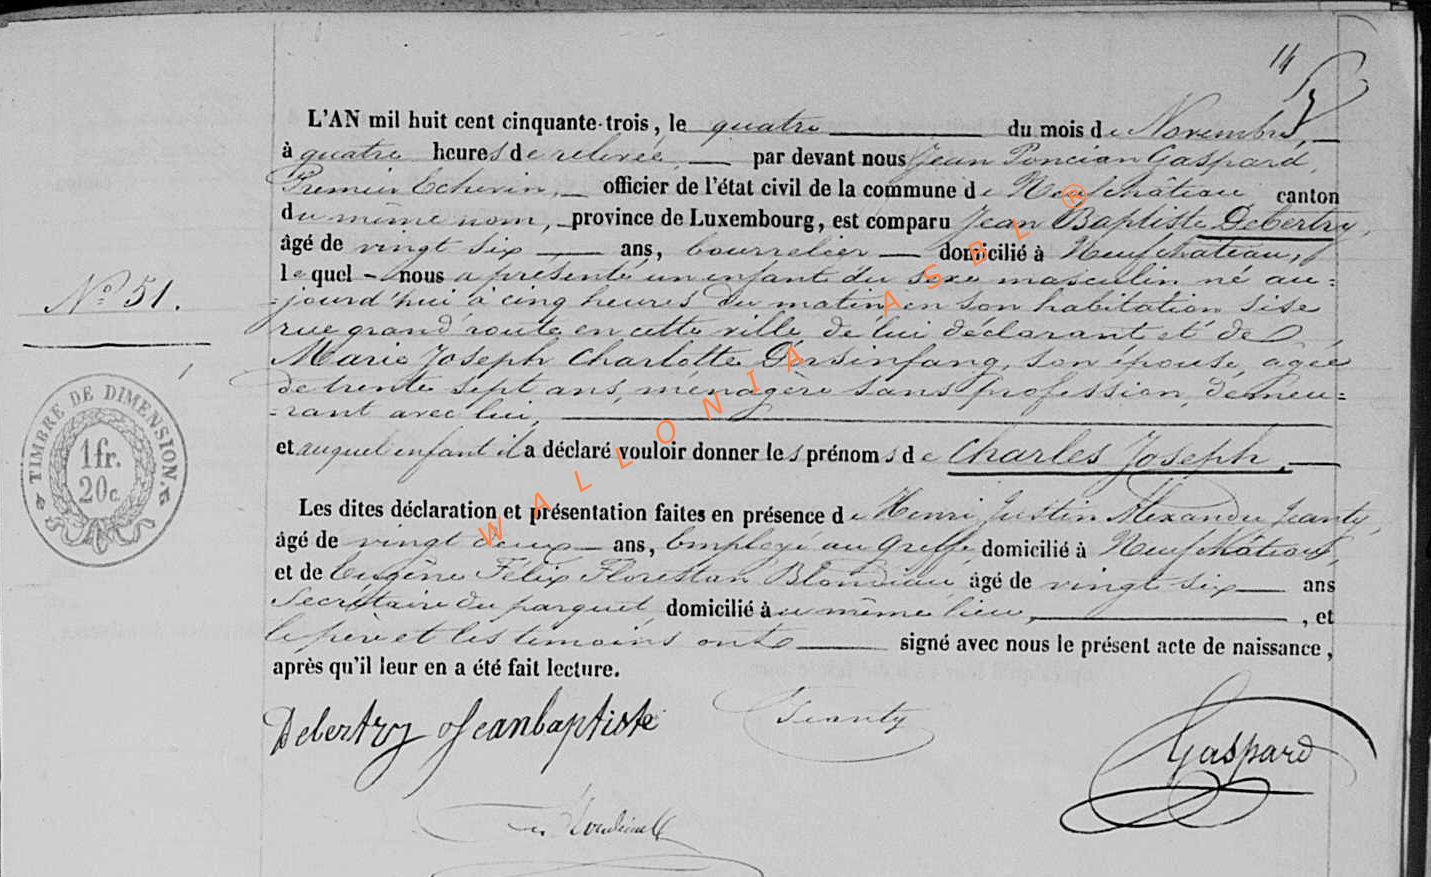 14
L'AN mil huit cent cinquante-trois, le quatre du mois de Novembre,
à quatre heures de relevée, par devant nous Jean Poncian Gaspard,
Premier Echevin, officier de l'état civil de la commune de Neufchâteau canton
du même nom, province de Luxembourg, est comparu Jean Baptiste Debertry,
âgé de vingt six ans, bourrelier domicilié à Neufchâteau,
lequel nous a présenté un enfant du sexe masculin né au=
N° 51.
=jourd'hui à cinq heures du matin en son habitation sise
rue grand'route en cette ville, de lui déclarant et de
Marie Joseph Charlotte Gersinfang, son épouse, agée
de trente sept ans, menagère sans profession, demeu=
=rant avec lui,
TIMBRE DE DIMENSION.
1fr.
20c.
et auquel enfant il a déclaré vouloir donner les prénoms de Charles Joseph.
Les dites déclaration et présentation faites en présence de Henri Justin Alexandre Jeanty,
âgé de vingt deux ans, Employé au Greffe, domicilié à Neufchâteau,
et de Eugène Félix Florestan Blondiau âgé de vingt six ans
Secrétaire du parquet, domicilié au même lieu, , et
le père et les témoins ont signé avec nous le présent acte de naissance,
après qu'il leur en a été fait lecture.
Debertry Jeanbaptiste
Jeanty
Gaspard
WALLONIA ASBL ®